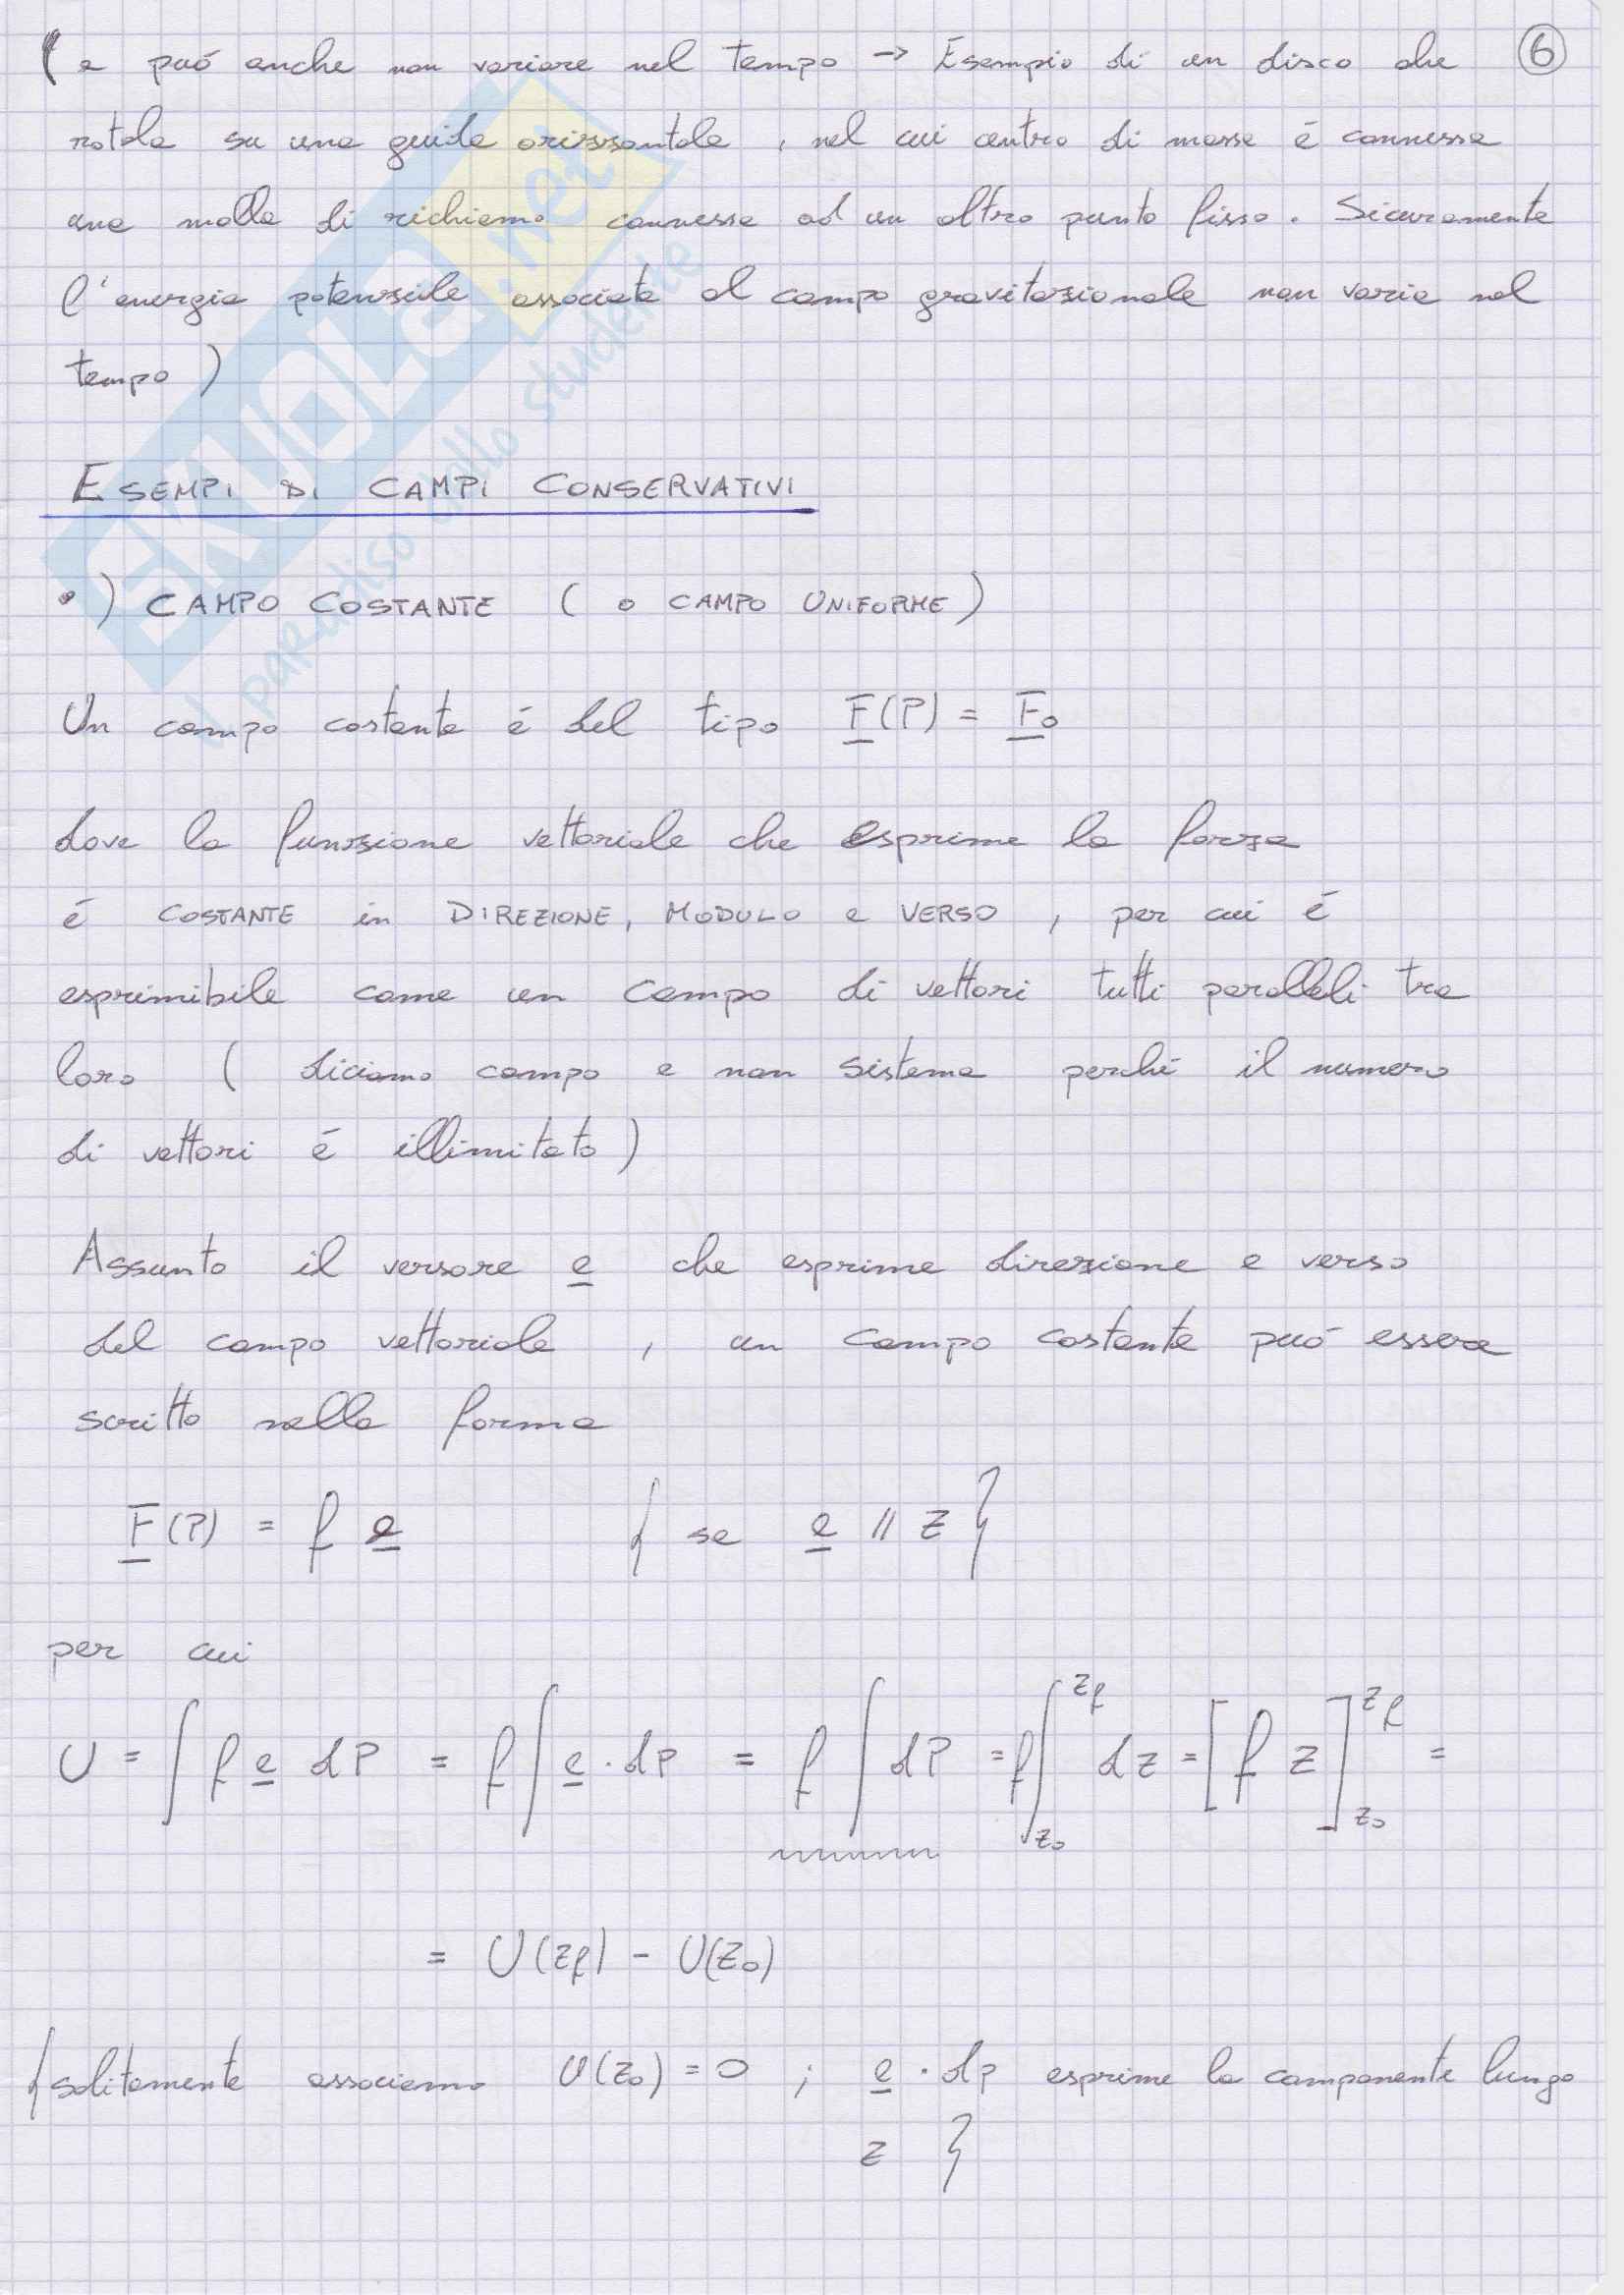 ( e può anche non variare nel tempo → Esempio di un disco che 6
rotola su una guida orizzontale, nel cui centro di massa é connessa
una molla di richiamo connessa ad un altro punto fisso. Sicuramente
l'energia potenziale associata al campo gravitazionale non varia nel
tempo )
ESEMPI DI CAMPI CONSERVATIVI
•) CAMPO COSTANTE ( o CAMPO UNIFORME )
Un campo costante é del tipo F(P) = F₀
dove la funzione vettoriale che esprime la forza
é COSTANTE in DIREZIONE, MODULO e VERSO , per cui é
esprimibile come un campo di vettori tutti paralleli tra
loro ( diciamo campo e non sistema perché il numero
di vettori é illimitato )
Assunto il versore e che esprime direzione e verso
del campo vettoriale , un campo costante può essere
scritto nella forma
F(P) = f e { se e // z }
per cui
U = ∫ f e dP = f ∫ e · dP = f ∫ dP = f ∫_{z₀}^{z_f} dz = [ f z ]_{z₀}^{z_f} =
= U(z_f) - U(z₀)
{ solitamente associamo U(z₀) = 0 ; e · dP esprime la componente lungo
z }
SKUOLA.net
il paradiso dello studente